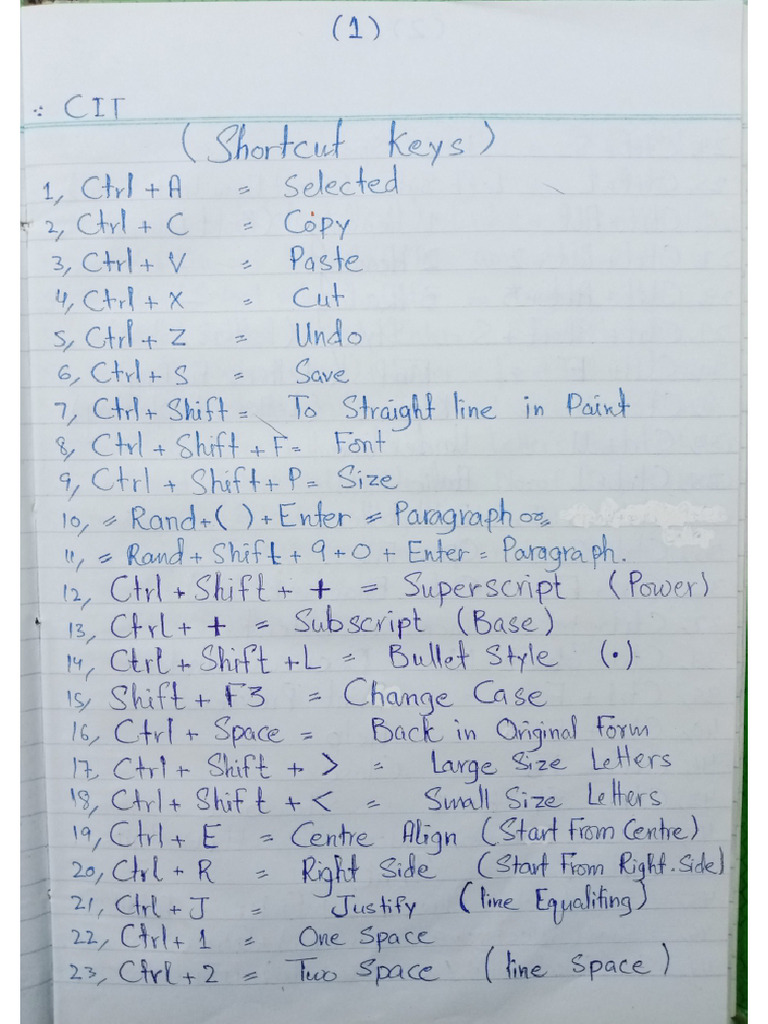 (1)
CIT
(Shortcut Keys)
1, Ctrl + A = Selected
2, Ctrl + C = Copy
3, Ctrl + V = Paste
4, Ctrl + X = Cut
5, Ctrl + Z = Undo
6, Ctrl + S = Save
7, Ctrl + Shift = To Straight line in Paint
8, Ctrl + Shift + F = Font
9, Ctrl + Shift + P = Size
10, = Rand + ( ) + Enter = Paragraph or,
11, = Rand + Shift + 9 + 0 + Enter = Paragraph.
12, Ctrl + Shift + + = Superscript (Power)
13, Ctrl + + = Subscript (Base)
14, Ctrl + Shift + L = Bullet Style (•)
15, Shift + F3 = Change Case
16, Ctrl + Space = Back in Original Form
17, Ctrl + Shift + > = Large Size Letters
18, Ctrl + Shift + < = Small Size Letters
19, Ctrl + E = Centre Align (Start From Centre)
20, Ctrl + R = Right Side (Start From Right.Side)
21, Ctrl + J = Justify (line Equaliting)
22, Ctrl + 1 = One Space
23, Ctrl + 2 = Two Space (line space)